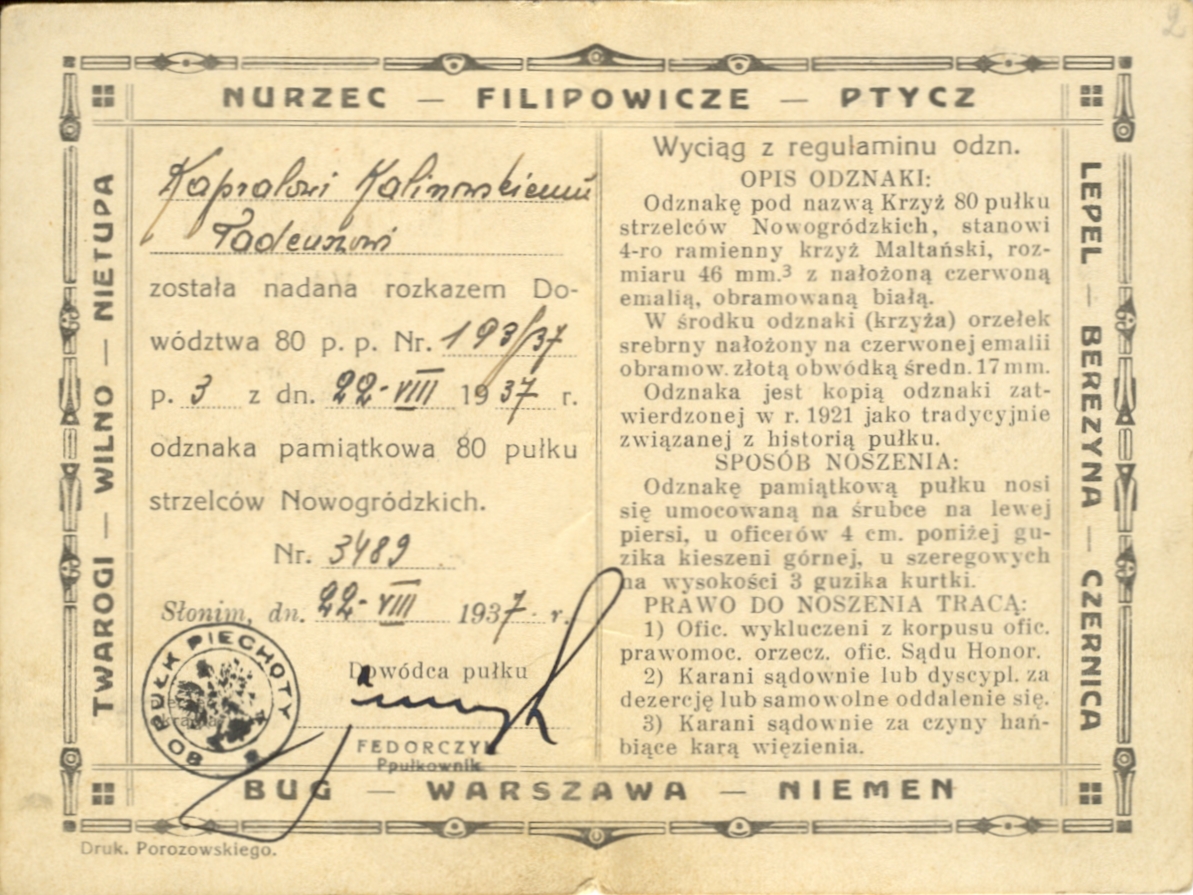 2
NURZEC — FILIPOWICZE — PTYCZ
TWAROGI — WILNO — NIETUPA
Kapralowi Kalinowskiemu
Tadeuszowi
została nadana rozkazem Do-
wództwa 80 p. p. Nr. 193/37
p. 3 z dn. 22-VIII 1937 r.
odznaka pamiątkowa 80 pułku
strzelców Nowogródzkich.
Nr. 3489
Słonim, dn. 22-VIII 1937 r.
80 PUŁK PIECHOTY
Dowódca pułku
FEDORCZYK
Ppułkownik
Wyciąg z regulaminu odzn.
OPIS ODZNAKI:
Odznakę pod nazwą Krzyż 80 pułku
strzelców Nowogródzkich, stanowi
4-ro ramienny krzyż Maltański, roz-
miaru 46 mm.³ z nałożoną czerwoną
emalią, obramowaną białą.
W środku odznaki (krzyża) orzełek
srebrny nałożony na czerwonej emalii
obramow. złotą obwódką średn. 17 mm.
Odznaka jest kopią odznaki zat-
wierdzonej w r. 1921 jako tradycyjnie
związanej z historią pułku.
SPOSÓB NOSZENIA:
Odznakę pamiątkową pułku nosi
się umocowaną na śrubce na lewej
piersi, u oficerów 4 cm. poniżej gu-
zika kieszeni górnej, u szeregowych
na wysokości 3 guzika kurtki.
PRAWO DO NOSZENIA TRACĄ:
1) Ofic. wykluczeni z korpusu ofic.
prawomoc. orzecz. ofic. Sądu Honor.
2) Karani sądownie lub dyscypl. za
dezercję lub samowolne oddalenie się.
3) Karani sądownie za czyny hań-
biące karą więzienia.
LEPEL — BEREZYNA — CZERNICA
BUG — WARSZAWA — NIEMEN
Druk. Porozowskiego.